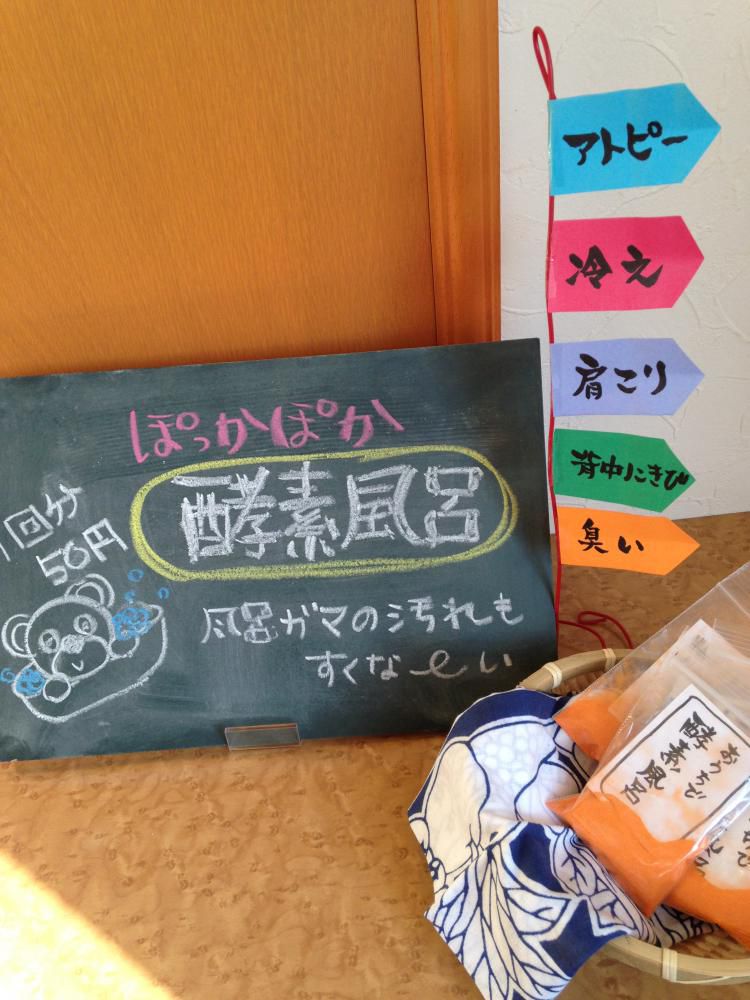 ぽっかぽか
酵素風呂
1回分
50円
風呂ガマの汚れも
すくなーい
アトピー
冷え
肩こり
背中にきび
臭い
おうちで
酵素風呂